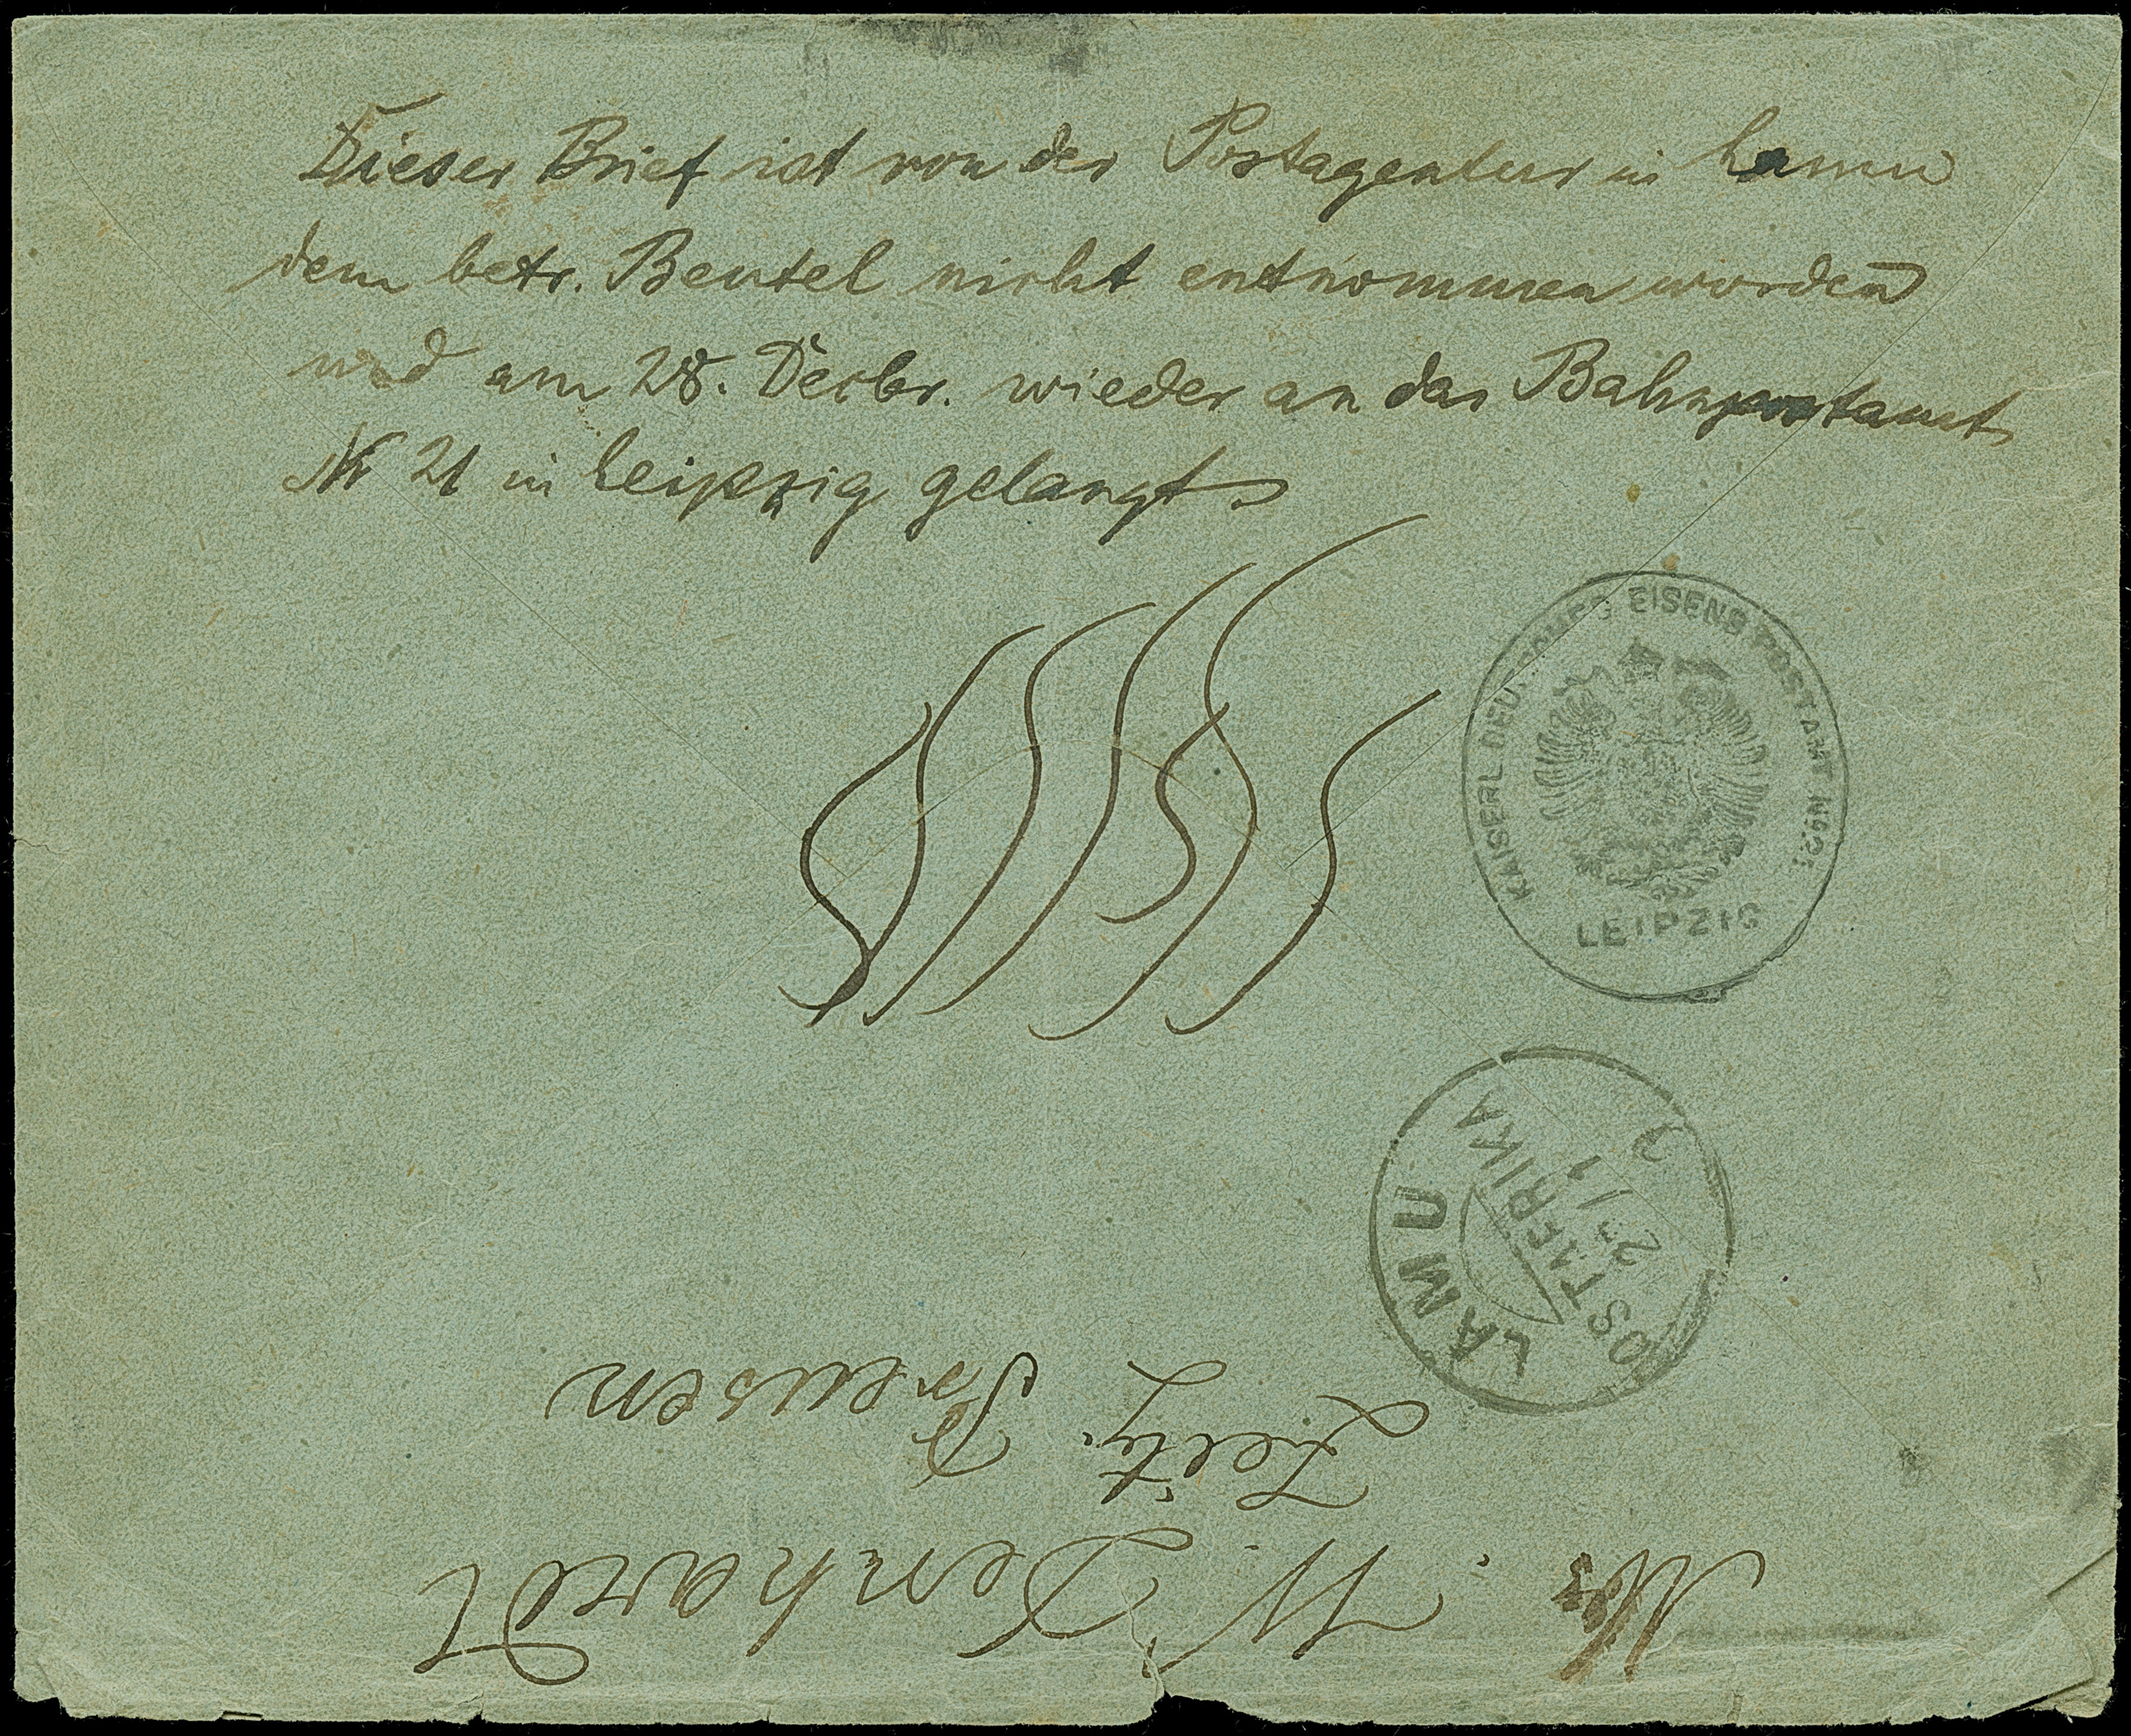 Dieser Brief ist von der Postagentur in Lamu
dem betr. Beutel nicht entnommen worden
und am 28. Decbr. wieder an das Bahnpostamt
№ 21 in Leipzig gelangt
KAISERL. DEUTSCHES EISENB. POSTAMT No. 21
LEIPZIG
LAMU
OSTAFRIKA
23/11
W. Denhardt
Zeitz. Preusen